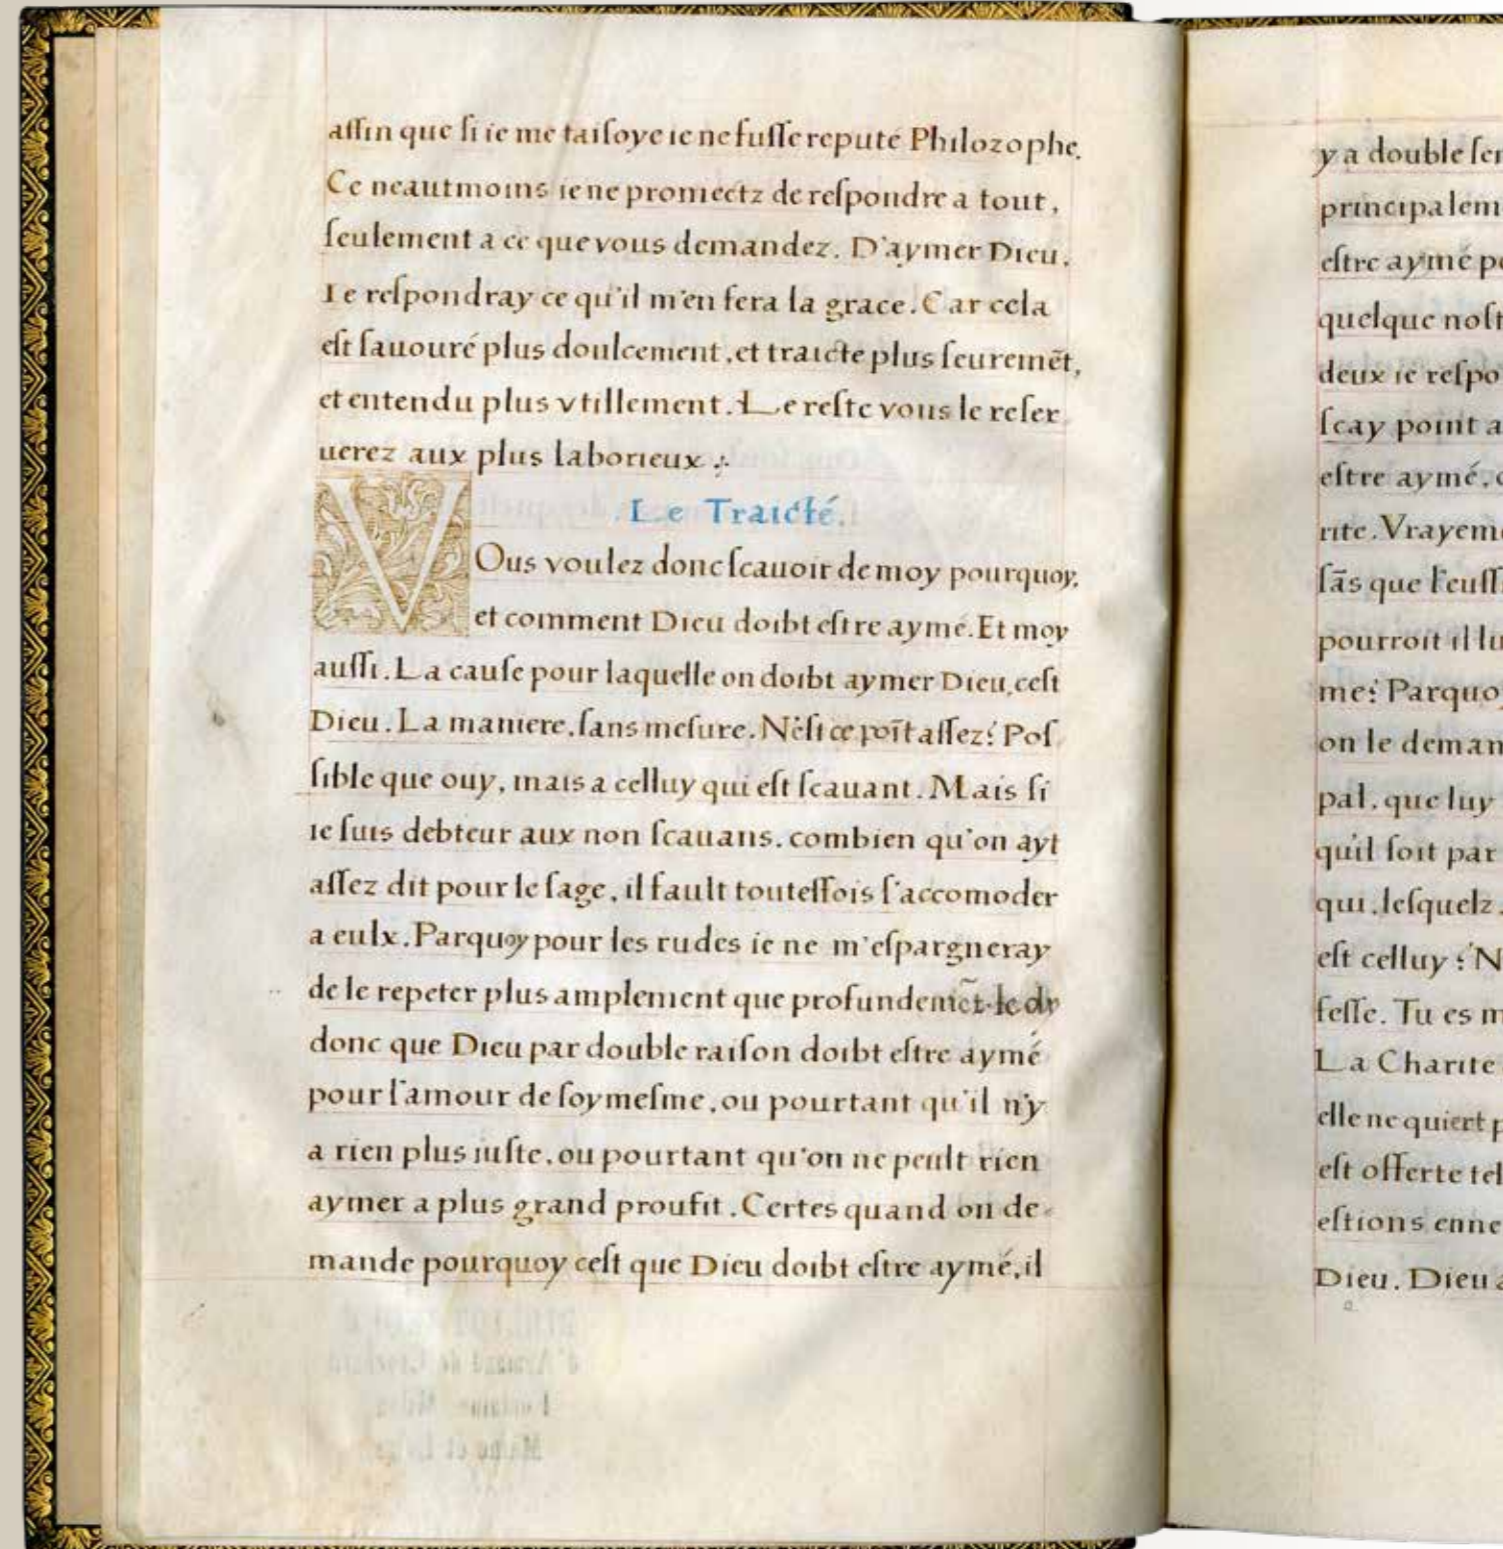 affin que ſi ie me taiſoye ie ne fuſſe reputé Philozophe.
Ce neautmoins ie ne promectz de reſpondre a tout,
ſeulement a ce que vous demandez. D'aymer Dieu.
Ie reſpondray ce qu'il m'en fera la grace. Car cela
eſt ſauouré plus doulcement, et traicte plus ſeuremēt,
et entendu plus vtillement. Le reſte vous le reſer
uerez aux plus laborieux
.Le Traicté.
VOus voulez donc ſcauoir de moy pourquoy,
et comment Dieu doibt eſtre aymé. Et moy
auſſi. La cauſe pour laquelle on doibt aymer Dieu, ceſt
Dieu. La maniere, ſans meſure. N'eſt ce poīt aſſez? Poſ
ſible que ouy, mais a celluy qui eſt ſcauant. Mais ſi
ie ſuis debteur aux non ſcauans, combien qu'on ayt
aſſez dit pour le ſage, il fault touteffois ſ'accomoder
a eulx. Parquoy pour les rudes ie ne m'eſpargneray
de le repeter plus amplement que profundemēt. Ie dy
donc que Dieu par double raiſon doibt eſtre aymé
pour l'amour de ſoymeſme, ou pourtant qu'il n'y
a rien plus iuſte, ou pourtant qu'on ne peult rien
aymer a plus grand proufit. Certes quand on de-
mande pourquoy ceſt que Dieu doibt eſtre aymé, il
y a double ſen
principalem
eſtre aymé po
quelque noſt
deux ie reſpo
ſcay point a
eſtre aymé, c
rite. Vrayeme
ſās que l'euſſi
pourroit il lu
me? Parquoy
on le deman
pal, que luy
qu'il ſoit par
qui, leſquelz
eſt celluy? N
feſſe. Tu es m
La Charite
elle ne quiert p
eſt offerte tel
eſtions enne
Dieu. Dieu a